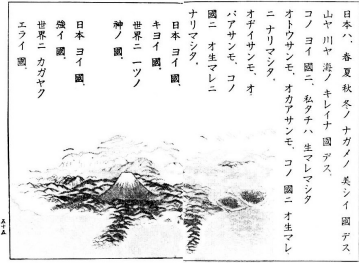 日本ハ、春夏秋冬ノ ナガメノ 美シイ 國デス。
山ヤ 川ヤ 海ノ キレイナ 國デス。
コノ ヨイ 國ニ、私タチハ 生マレマシタ。
オトウサンモ、オカアサンモ、コノ 國ニ オ生マレ
ニ ナリマシタ。
オヂイサンモ、オ
バアサンモ、コノ
國ニ オ生マレニ
ナリマシタ。
日本 ヨイ 國、
キヨイ 國。
世界ニ 一ツノ
神ノ 國。
日本 ヨイ 國、
強イ 國。
世界ニ カガヤク
エライ 國。
五十五